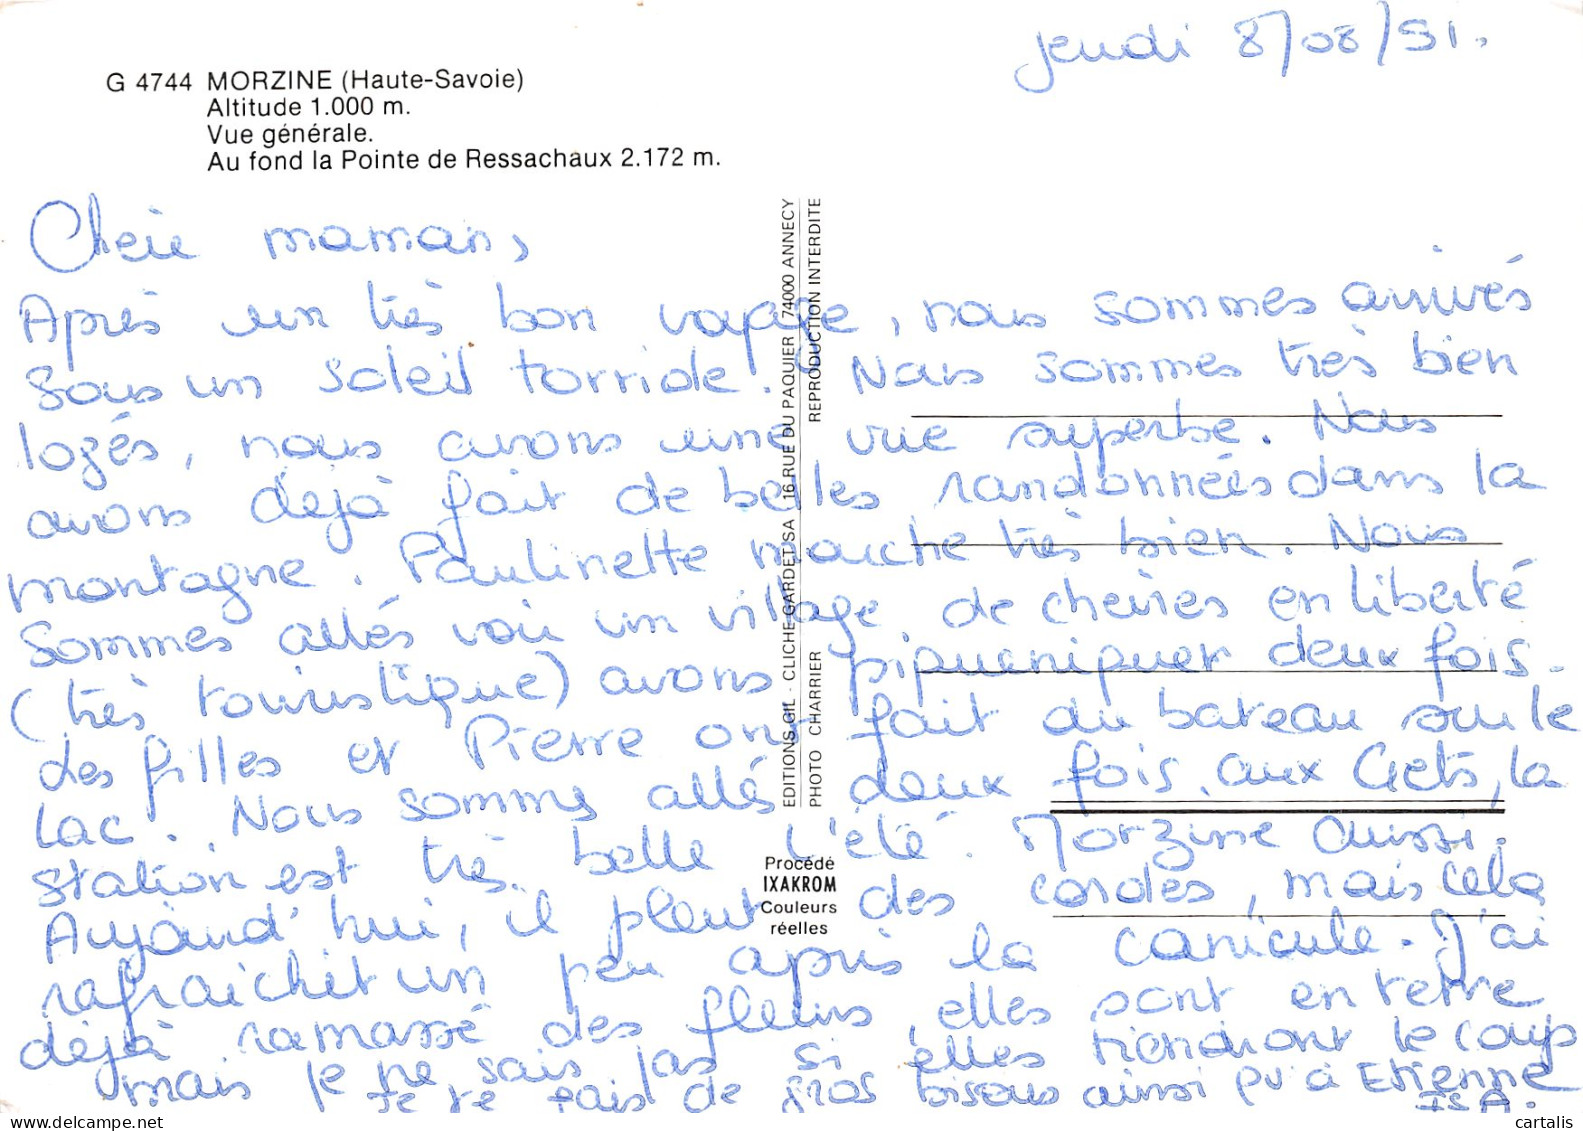 jeudi 8/08/91.
G 4744 MORZINE (Haute-Savoie)
Altitude 1.000 m.
Vue générale.
Au fond la Pointe de Ressachaux 2.172 m.
Chère maman,
Après un très bon voyage, nous sommes arrivés
sous un soleil torride. Nous sommes très bien
logés, nous avons une vue superbe. Nous
avons déjà fait de belles randonnées dans la
montagne. Paulinette marche très bien. Nous
sommes allés voir un village de chèvres en liberté
(très touristique) avons piqueniquer deux fois.
Les filles et Pierre ont fait du bateau sur le
lac. Nous sommes allés deux fois aux Gets, la
station est très belle l'été. Morzine aussi.
Aujourd'hui, il pleut des cordes, mais cela
rafraichit un peu après la canicule. J'ai
déjà ramassé des fleurs, elles sont en terre
mais je ne sais pas si elles tiendront le coup
Je te fais de gros bisous ainsi qu'à Etienne
ISA.
EDITIONS GIL - CLICHE GARDET SA 16 RUE DU PAQUIER 74000 ANNECY
PHOTO CHARRIER REPRODUCTION INTERDITE
Procédé
IXAKROM
Couleurs
réelles
delcampe.net
cartalis